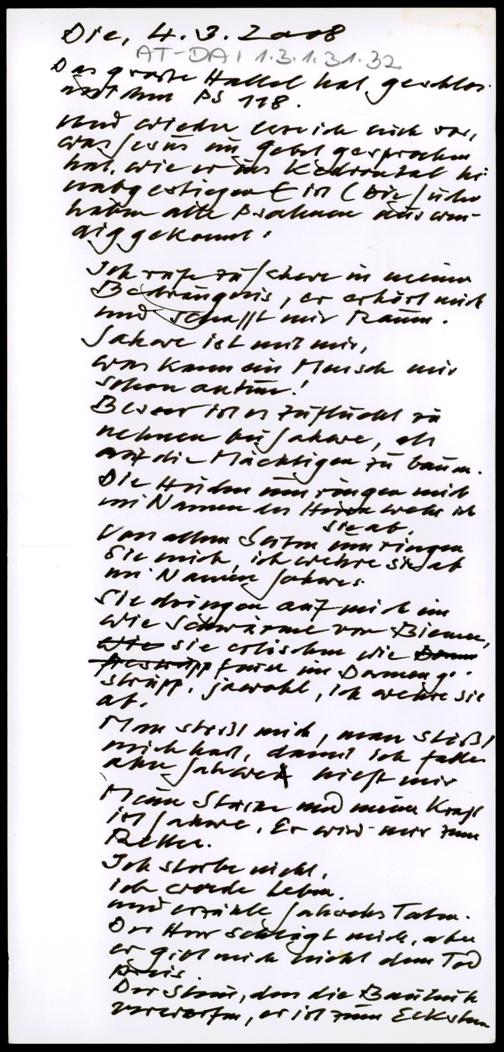 Die, 4.3.2008
AT-DAI 1.3.1.31.32
Das große Hallel hat geschlos-
mit dem PS 118.
und wieder stelle ich mir vor,
was Jesus im Gebet gesprochen
hat, wie er ins Kedrontal hi-
nabgestiegen ist (Die Juden
haben alle Psalmen auswen-
dig gekonnt:
Ich rufe zu Jahwe in meiner
Bedrängnis, er erhört mich
und schafft mir Raum.
Jahwe ist mit mir,
was kann ein Mensch mir
schon antun!
Besser ist es Zuflucht zu
nehmen bei Jahwe, als
auf die Mächtigen zu baun.
Die Heiden umringen mich
im Namen des Herrn wehr ich
sie ab.
Von allen Seiten umringen
Sie mich, ich wehre sie ab
im Namen Jahwes.
Sie dringen auf mich ein
wie Schwärme von Bienen,
wie sie erlöschen wie
Feuer im Dornenge-
strüpp, jawohl, ich wehre sie
ab.
Man stößt mich, man stößt
mich hart, damit ich falle
aber Jahwe hilft mir
Meine Stärke und meine Kraft
ist Jahwe. Er wird mir zum
Retter.
Ich sterbe nicht,
ich werde leben.
und erzähle Jahwehs Taten.
Der Herr schlägt mich, aber
er gibt mich nicht dem Tod
preis.
Der Stein, den die Bauleute
verwarfen, er ist zum Eckstein